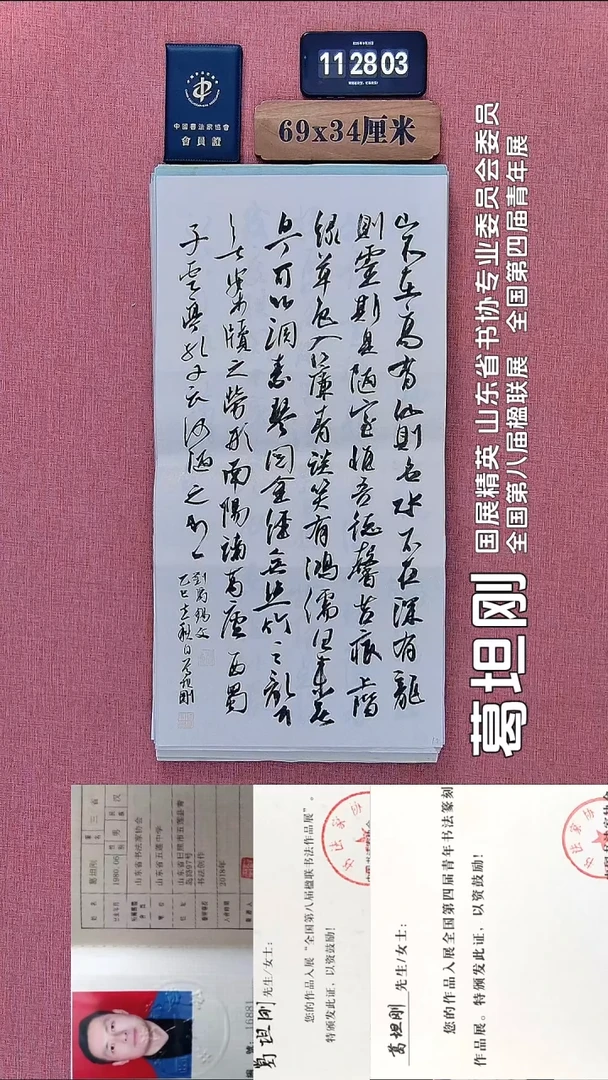 中国书法家协会
中國書法家協會
會員證
11 28 03
69x34厘米
山不在高有仙則名水不在深有龍
則靈斯是陋室惟吾德馨苔痕上階
綠草色入簾青談笑有鴻儒往來無
白丁可以調素琴閱金經無絲竹之亂耳
無案牘之勞形南陽諸葛廬西蜀
子雲亭孔子云何陋之有
劉禹錫文
乙巳立秋日葛坦剛
葛坦刚
国展精英 山东省书协专业委员会委员
全国第八届楹联展 全国第四届青年展
姓名 葛坦刚
山东省书法家协会
山东省五莲中学
书法创作
2018年
16881
葛坦刚 先生/女士：
您的作品入展“全国第八届楹联书法作品展”。
特颁发此证，以资鼓励！
葛坦刚 先生/女士：
您的作品入展全国第四届青年书法篆刻
作品展。特颁发此证，以资鼓励！